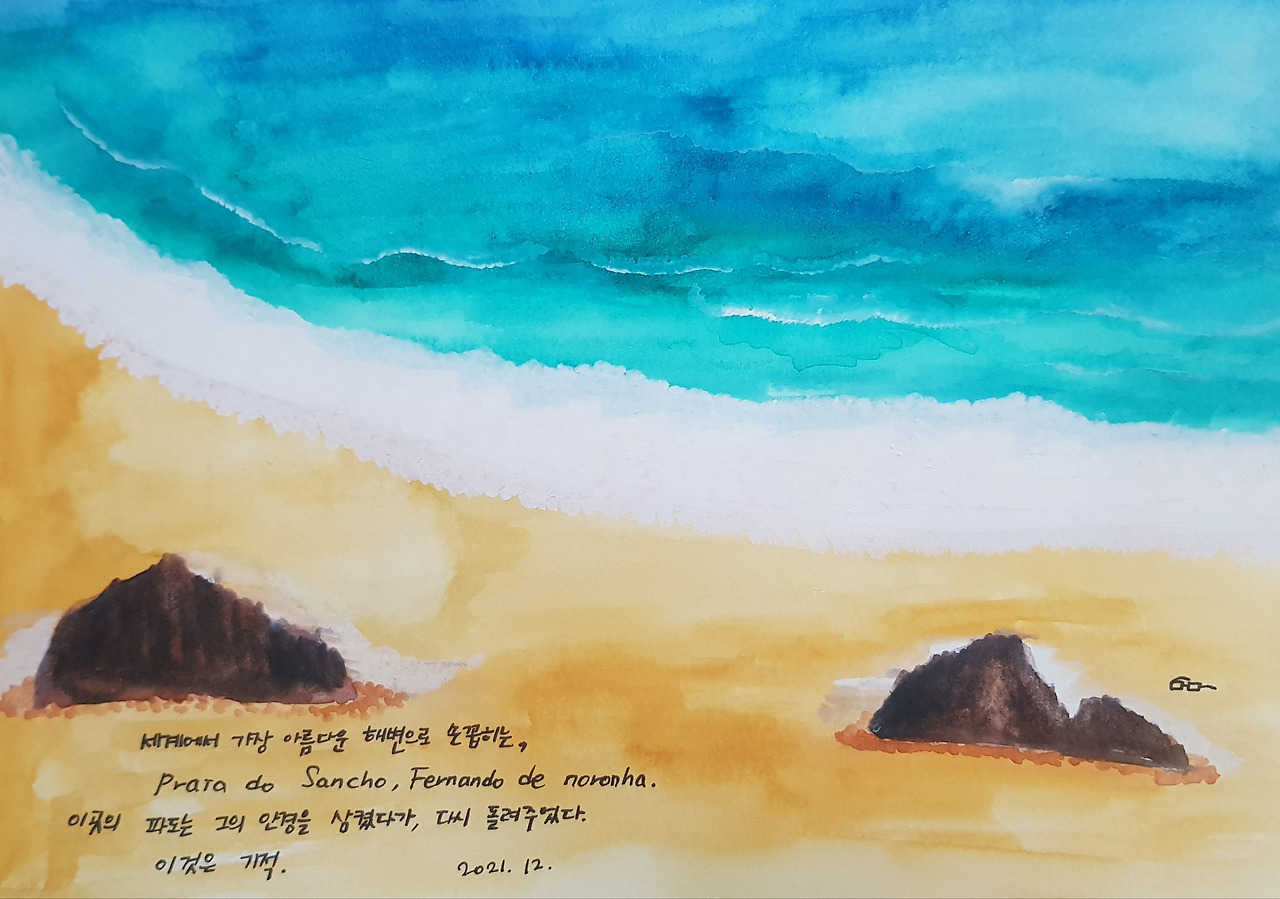 세계에서 가장 아름다운 해변으로 손꼽히는,
Praia do Sancho, Fernando de noronha.
이곳의 파도는 그의 안경을 삼켰다가, 다시 돌려주었다.
이것은 기적.
2021. 12.